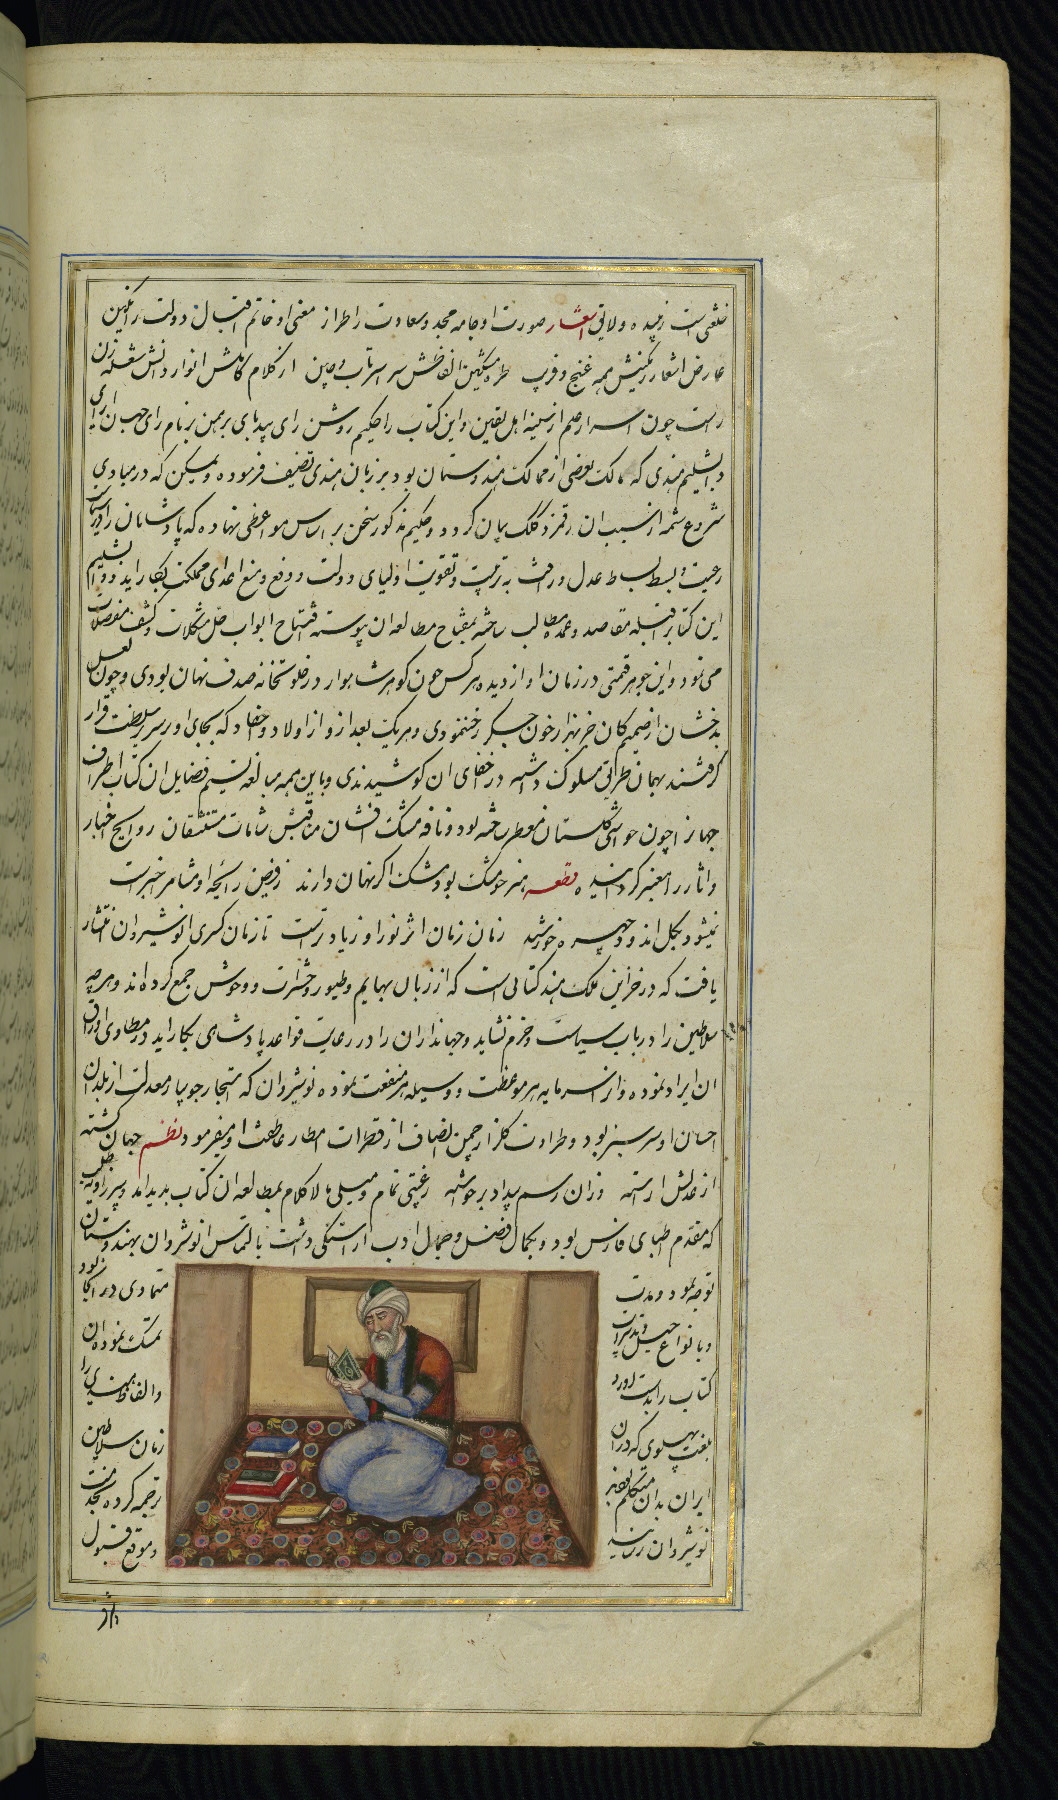 خلعتی است زیبنده ولایق اشعار صورت او جامه مجد و سعادت را طراز معنی او خاتم اقبال دولت را نگین
عارض اشعار رنگینش همه غنج و فریب طره مشکین الفاظش سر بسر تاب و چین از کلام کاملش انوار دانش شعله زن
راست چون اسرار علم از سینه اهل یقین و این کتاب را حکیم روشن رای بیدپای برهمن بر نام رای جهان ارای
دابشلیم هندی که مالک بعضی از ممالک هندوستان بود بر زبان هندی تصنیف فرموده و یمکن که در مبادی
شروع شمه از سبب ان رقمزد کلک بیان کردد و حکیم مذکور سخن بر اساس مواعظی نهاده که پادشاهان را در سیاست
رعیت و بسط بساط عدل و رافت به تربیت و تقویت اولیای دولت و دفع و منع اعدای مملکت بکار اید و دابشلیم
این کتابرا قبله مقاصد و عمده مطالب ساخته بمفتاح مطالعه ان پیوسته افتتاح ابواب حل مشکلات و کشف معضلات
می نمود و این جوهر قیمتی در زمان او از دیده هر کس چون کوهر شاهوار در خلوتخانه صدف نهان بودی و چون لعل
بدخشان از صمیم کان جز بهزار خون جکر رخ ننمودی و هر یک بعد از و از اولاد و احفاد که بجای او بر سریر سلطنت قرار
کرفتند بهمان طریق مسلوک داشته در اخفای ان کوشیدندی و با این همه مبالغه نسیم فضایل ان کتاب اطراف
جهانرا چون حواشی کلستان معطر ساخته بود و نافه مشک افشان مناقبش شامات مستنشقان روایح اخبار
و اثار را معنبر کردانیده قطعه هنر چو مشک بود مشک اکر نهان دارند ز فیض رایحه او مشام را خبر است
نمیشود بکل اندود چهره خورشید زمان زمان اثر نور او زیاد تر است تا زمان کسری انوشیروان انتشار
یافت که در خزاین ملک هند کتابی است که از زبان بهایم و طیور و حشرات و وحوش جمع کرده اند و هر چه
سلاطین را در باب سیاست و حزم شاید و جهانداران را در رعایت قواعد پادشاهی بکار اید در مطاوی اوراق
ان ایراد نموده و انرا سرمایه هر موعظت و وسیله هر منفعت نموده نوشیروان که اشجار جویبار معدلت از باران
احسان او سرسبز بود و طراوت کلزار چمن انصاف از قطرات امطار عاطفت او میفرمود نظم جهان کشته
از عدلش اراسته وزان رسم بیداد برخاسته رغبتی تمام و میلی لا کلام بمطالعه ان کتاب پدید امد و برزویه طبیب
که مقدم اطبای فارس بود و بکمال فضل و جمال ادب اراستکی داشت بالتماس انوشروان بهندوستان
توجه نمود و مدت متمادی در انجا بود
و با نواع حیل و تدبیرات تمسک نموده ان
کتاب را بدست اورد و الفاظ هندی را
بلغت پهلوی که دران زمان سلاطین
ایران بدان متکلم بودند ترجمه کرده بخدمت
نوشروان رسانید و موقع قبول